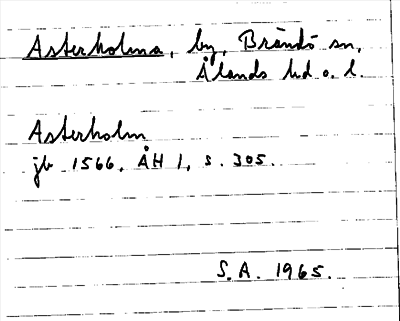 Asterholma, by, Brändö sn,
Ålands hd o. l.
Asterholm
jb 1566, ÅH 1, s. 305.
S.A. 1965.